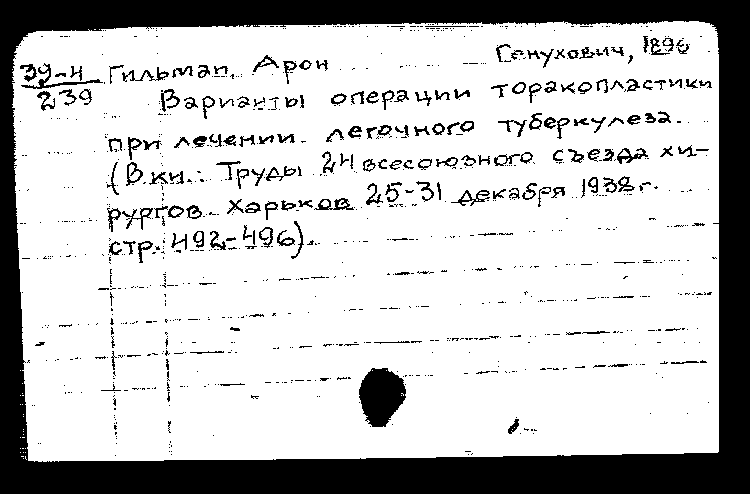 39-4 Гильман, Арон Генухович, 1896
239 Варианты операции торакопластики
при лечении легочного туберкулеза.
(В кн.: Труды 24 всесоюзного съезда хи-
рургов Харьков 25-31 декабря 1938 г.
стр. 492-496).